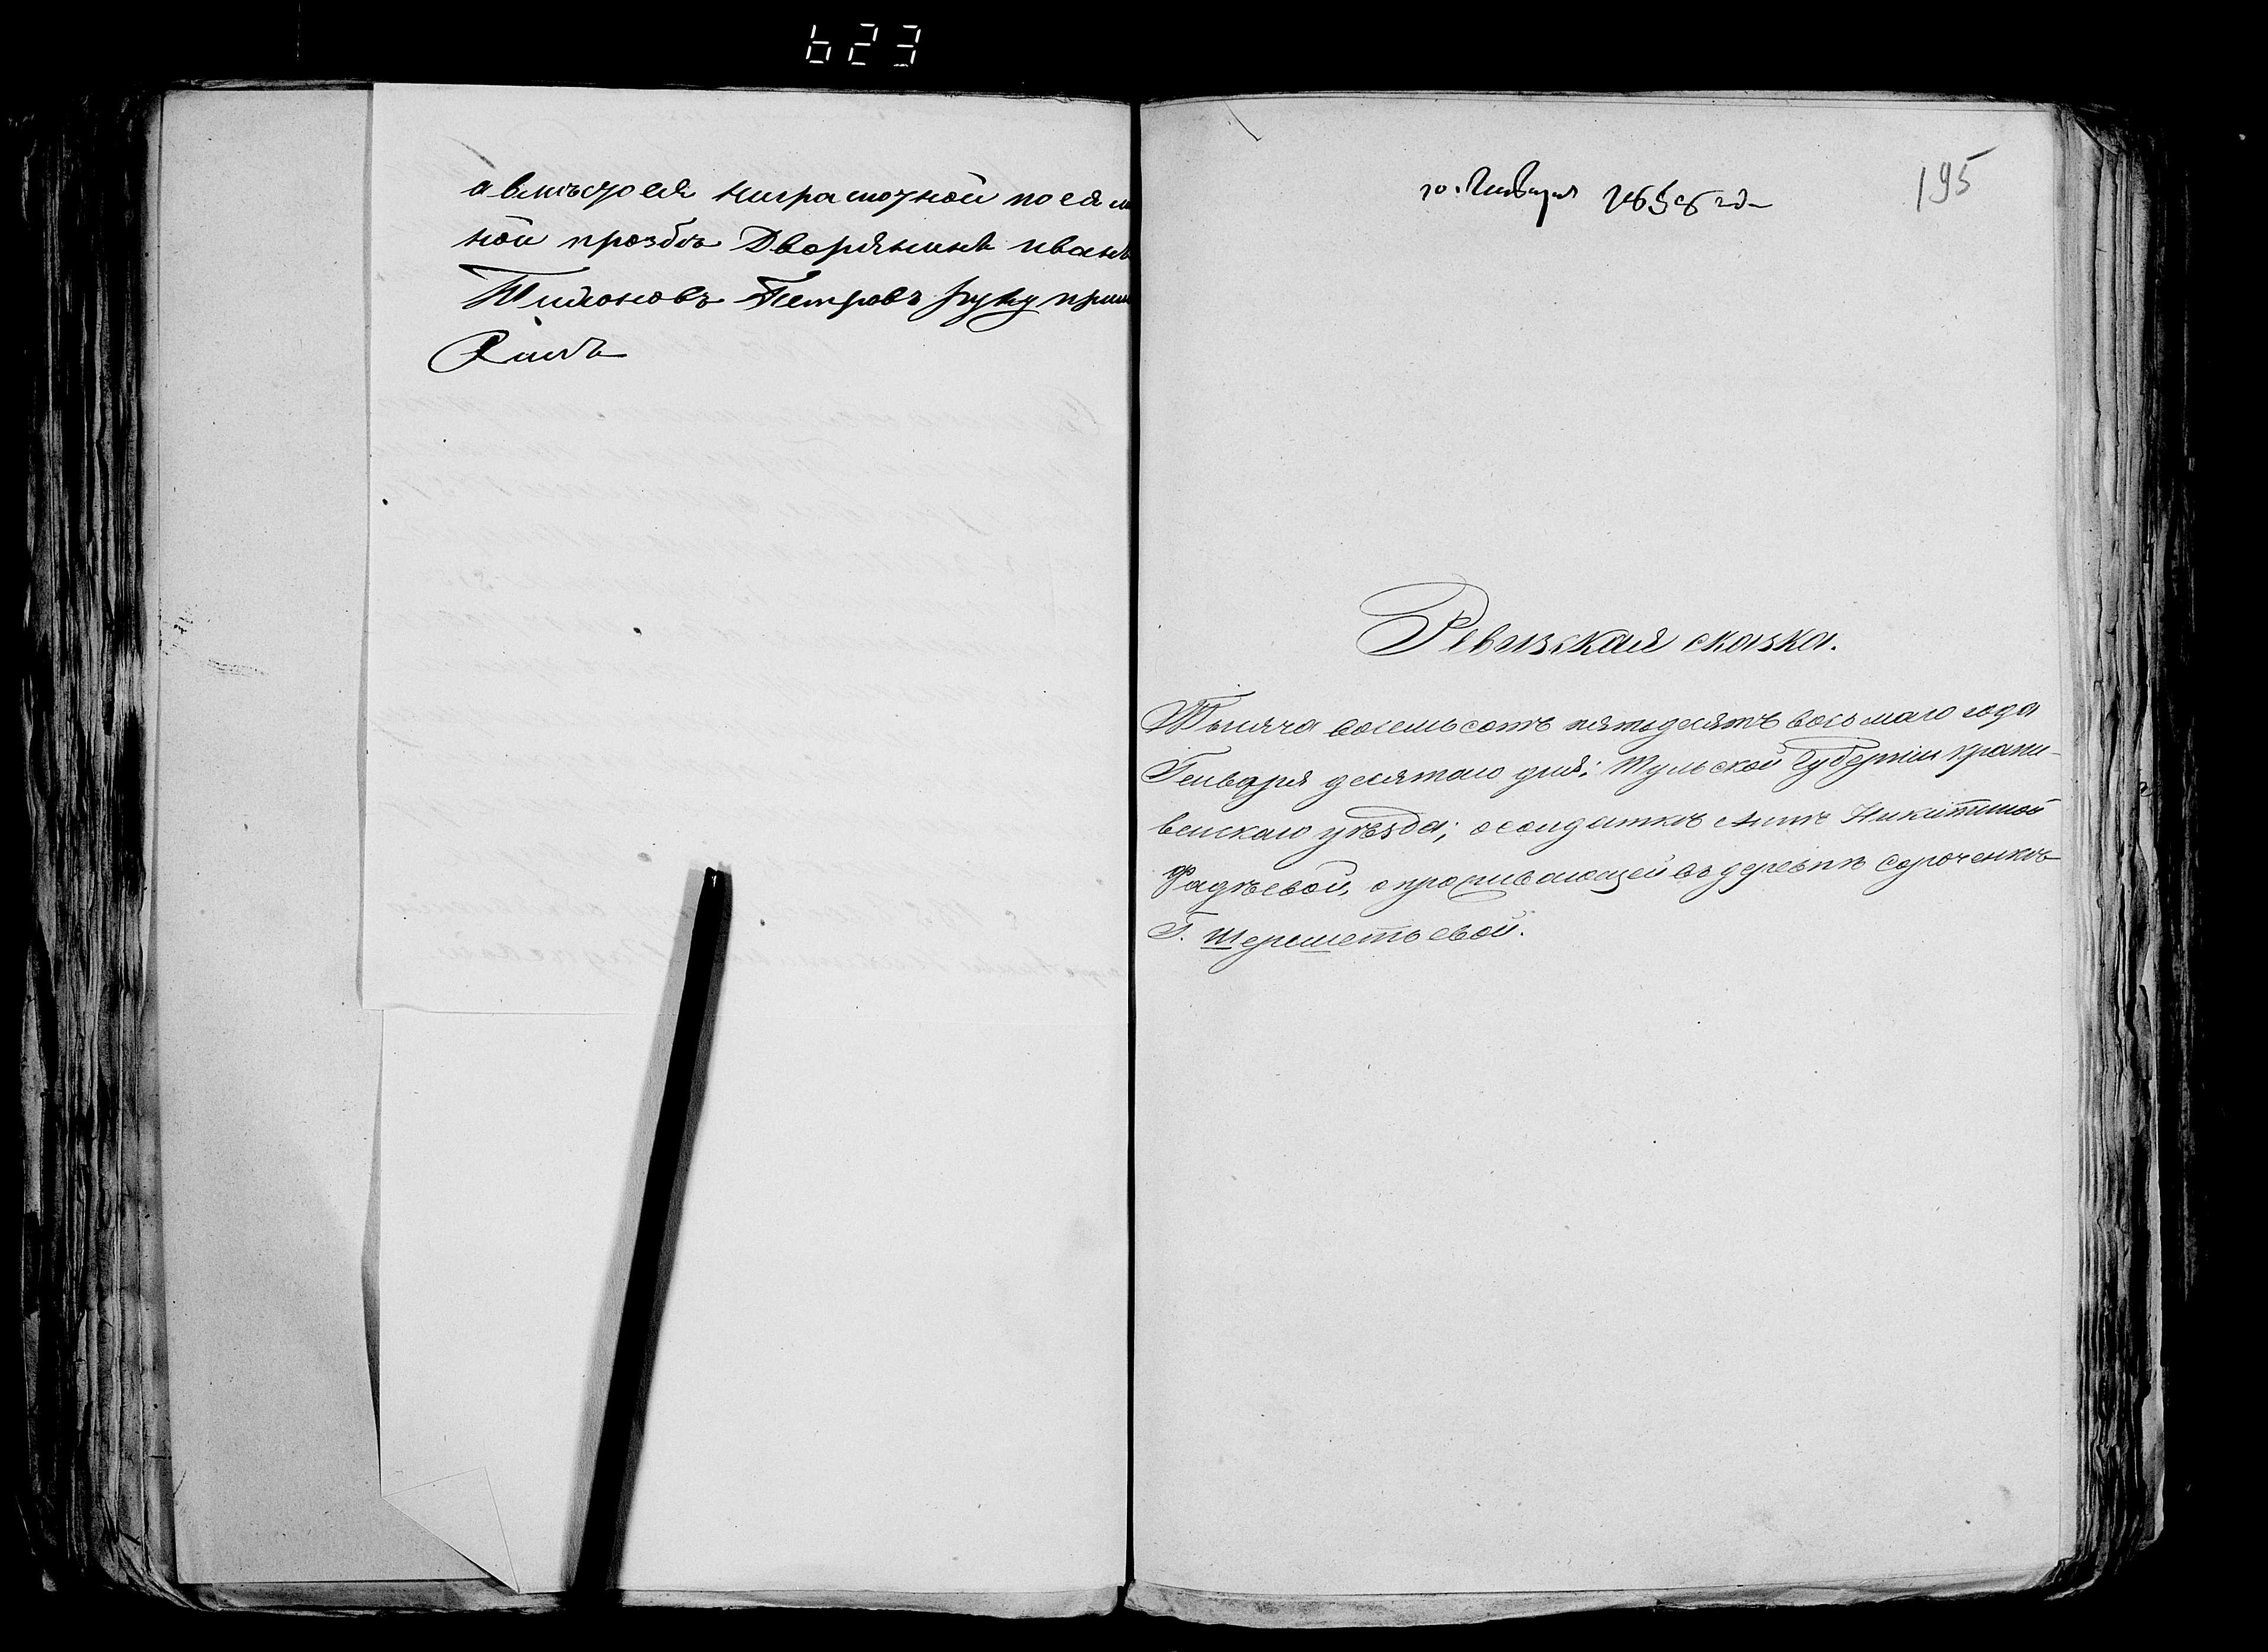 623
а вместо ея низграмотной по ея ли
ной прозбѣ Дворянинъ иванъ
Тихоновъ Петровъ руку прило
жилъ
10. Генваря 1858 года
195
Ревизская сказка.
Тысяча восемьсотъ пятьдесятъ восьмаго года
Генваря десятаго дня; Тульской Губерніи Крапи-
венскаго уѣзда; о солдаткѣ Аннѣ Никитиной
Фадѣевой, о проживающей въ деревнѣ Сороченкѣ
Г. Шереметьевой.